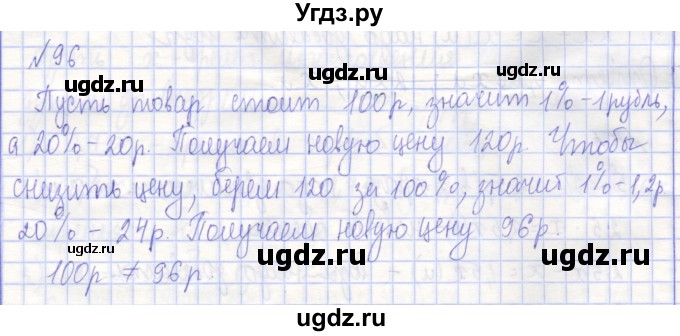 Угдз.ру
№96
Пусть товар стоит 100р, значит 1% – 1 рубль,
а 20% – 20р. Получаем новую цену 120р. Чтобы
снизить цену, берем 120 за 100%, значит 1% – 1,2р
20% – 24р. Получаем новую цену 96р.
100р ≠ 96р
ugdz.ru
ugdz.ru
ugdz.ru
ugdz.ru
ugdz.ru
ugdz.ru
ugdz.ru
ugdz.ru
ugdz.ru
ugdz.ru